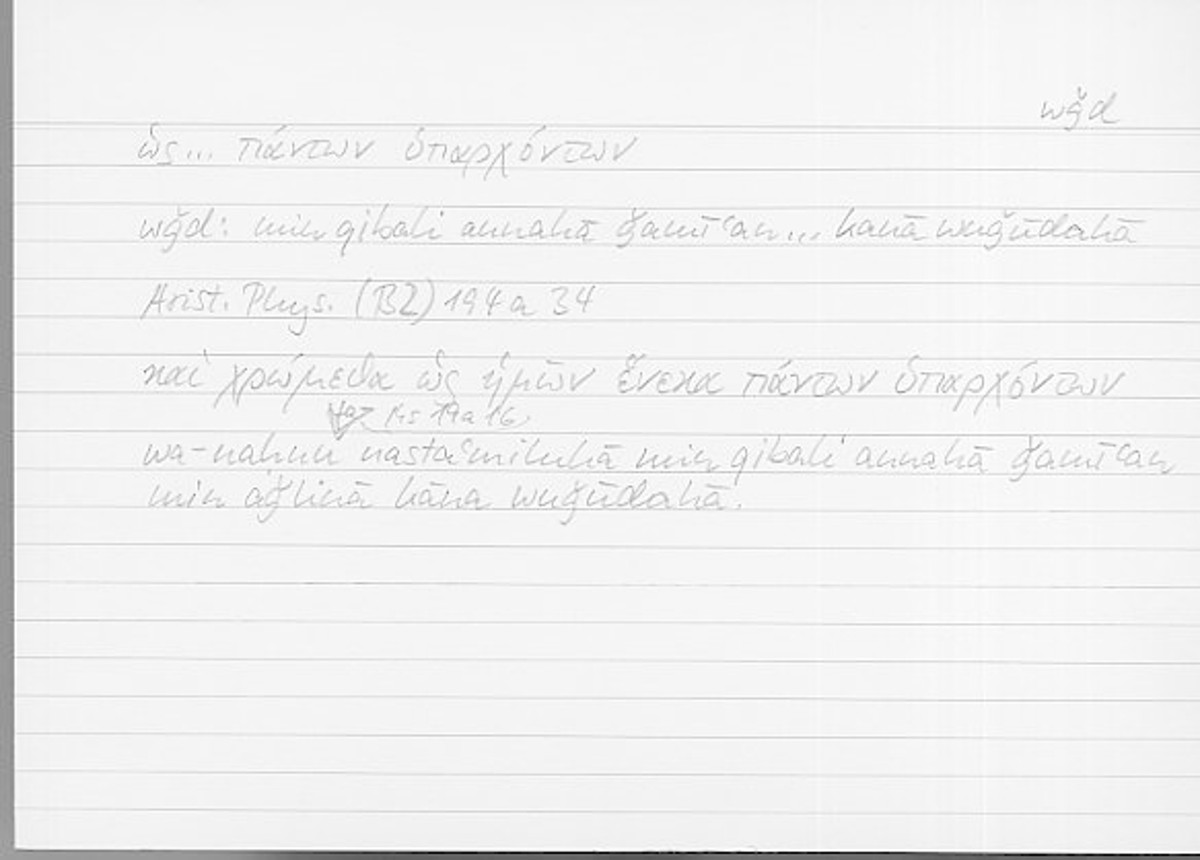 wǧd
ὡς... πάντων ὑπαρχόντων
wǧd: min qibali annahā ǧamīʿan... kāna wuǧūdahā
Arist. Phys. (B2) 194a 34
καὶ χρώμεθα ὡς ἡμῶν ἕνεκα πάντων ὑπαρχόντων
Hs 19a 16
wa-naḥnu nastaʿmiluhā min qibali annahā ǧamīʿan
min aǧlinā kāna wuǧūdahā.